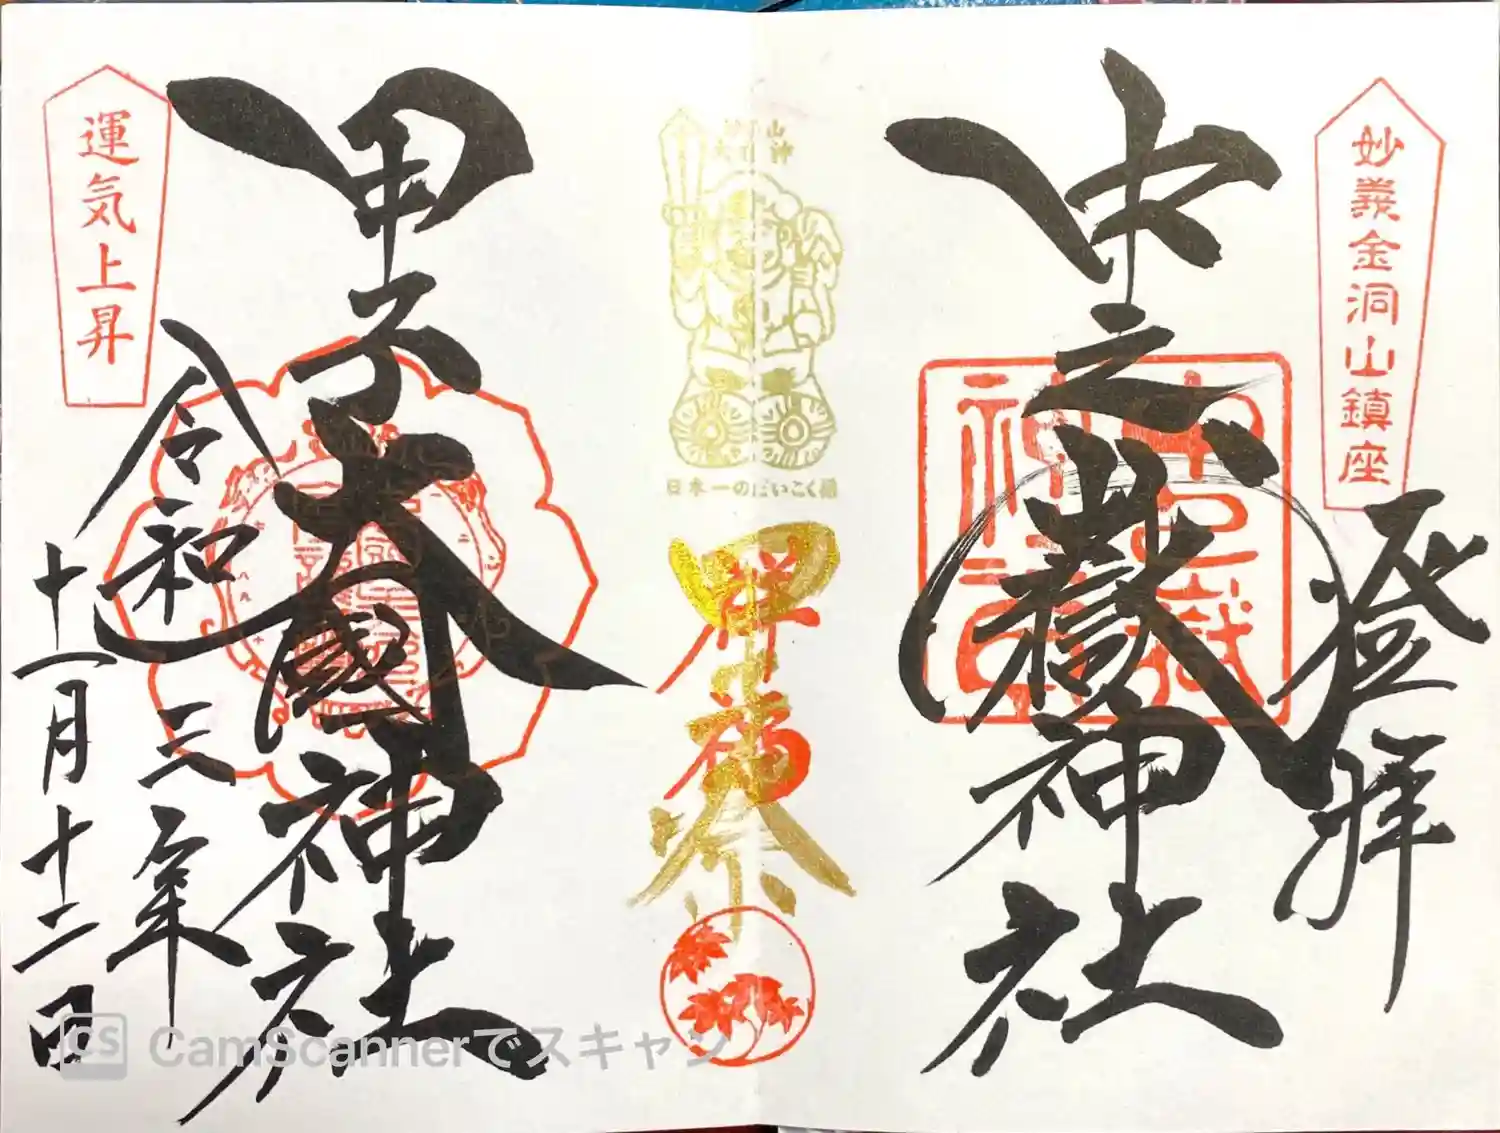 妙義金洞山鎮座
登拝
中之嶽神社
甲子祭
祥福
日本一のだいこく様
甲子大國神社
運気上昇
令和三年
十一月十二日
CS CamScannerでスキャン